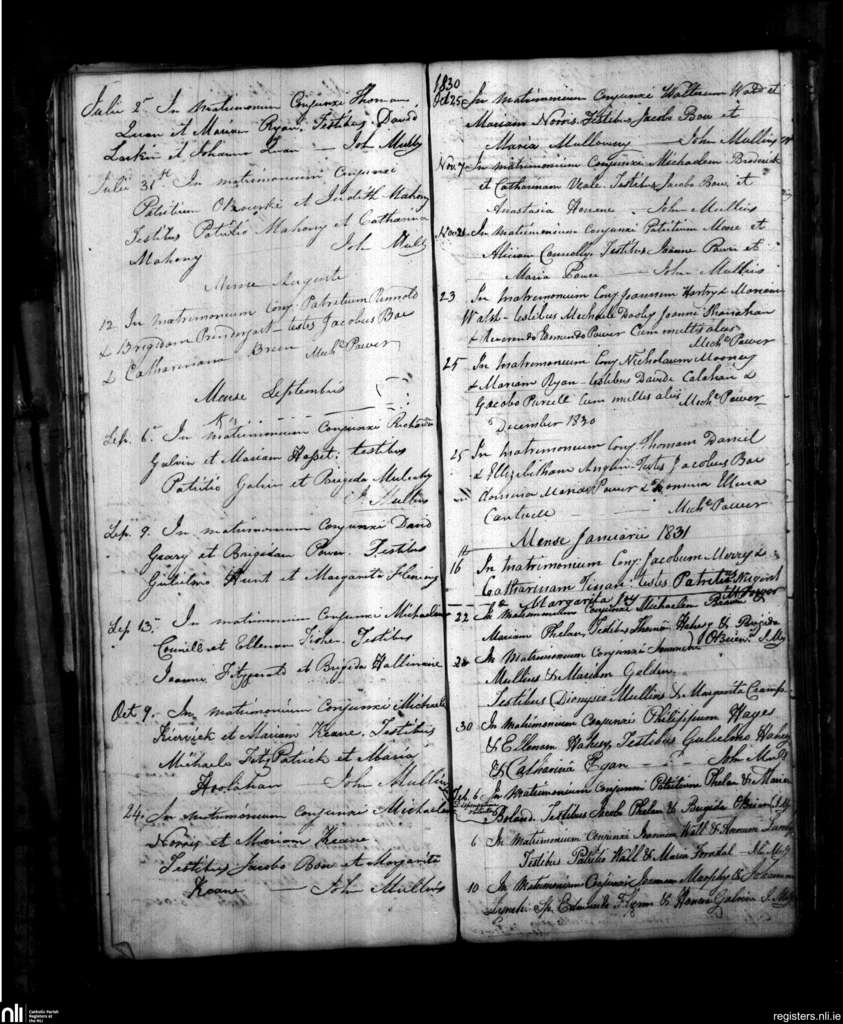 Julii 2d In Matrimonium Conjunxi Thomam
Quan et Mariam Ryan. Testibus David
Larkin et Johanna Quan — Joh Mully
Julii 31st In matrimonium Conjunxi
Patritium et Judith Mahony
Testibus Patritio Mahony et Catharina
Mahony John Mully
Mense Augusti
12 In Matrimonium Conj. Patritium
& Brigidam testes Jacobus Boe
& Catharinam Breen Michl Power
Mense Septembris
Sep. 6. In matrimonium Conjunxi Richardum
Galvin et Mariam Hasset: testibus
Patritio Galvin et Brigida
J. Mullins
Sep. 9. In matrimonium Conjunxi David
Geary et Brigidam Power. Testibus
Gulielmo Hunt et Margarita Fleming
Sep 13. In matrimonium Conjunxi Michaelem
et Ellenam Fisher. Testibus
Joanni Fitzgerald et Brigida Hallinane
Oct 9. In matrimonium Conjunxi Michaelem
Kirwick et Mariam Keane. Testibus
Michaele FitzPatrick et Maria
Hoolahan — John Mullins
24. In Matrimonium Conjunxi Michaelem
Norris et Mariam Keane.
Testibus Jacobo Bow et Margarita
Keane — John Mullins
1830
Oct 25 In Matrimonium Conjunxi Waltherum Wald et
Mariam Norris. Testibus Jacobo Bow et
Maria Mullowny — John Mullins
Nov. 7 In matrimonium Conjunxi Michaelem Broderick
et Catharinam Veale. Testibus Jacobo Bow et
Anastasia — John Mullins
Nov 21 In Matrimonium Conjunxi Patritium Moore et
Aliciam Connolly Testibus Joanne Power et
Maria Power — John Mullins
23 In Matrimonium Conj Joannem Hartry & Mariam
Walsh — testibus Michaele Dooly Joanni Shanahan
& Reverendo Edmundo Power Cum multis aliis
Michl Power
25 In Matrimonium Conj Nicholaum Mooney
& Mariam Ryan — testibus Davide Calahan &
Jacobo Purcell Cum multis aliis Michl Power
December 1830
25 In Matrimonium Conj. Thomam Daniel
& Elizabetham Anglin. Testes Jacobus Boe
Power & Honnora Ellena
Cantwell — Michl Power
Mense Januarii 1831
16 In Matrimonium Conj. Jacobum Merry &
Catharinam testes Patritius Nugent
& Margarita M Power
22 In Matrimonium Conjunxi Michaelem &
Mariam Phelan, Testibus Thoma Hahesy & Brigida
O'Brien. J. My
24 In Matrimonium Conjunxi Joannem
Mullins & Mariam Golden
Testibus Dionysio Mullins & Margarita
30 In Matrimonium Conjunxi Philippum Hayes
& Ellenam Hahesy, Testibus Gulielmo Hahesy
& Catharina Egan — John Mull
Feb 6 In Matrimonium Conjunxi Patritium Phelan & Mariam
Boland. Testibus Jacobo Phelan & Brigida OBrien J. My
6 In Matrimonium Conjunxi Joannem Wall & Annam
Testibus Patritio Wall & Maria
10 In Matrimonium Conjunxi Joannem Murphy & Joannam
Lynch. Sp. Edmundo Flynn & Honora Galvin J. My
nli Catholic Parish
Registers at
the NLI
registers.nli.ie